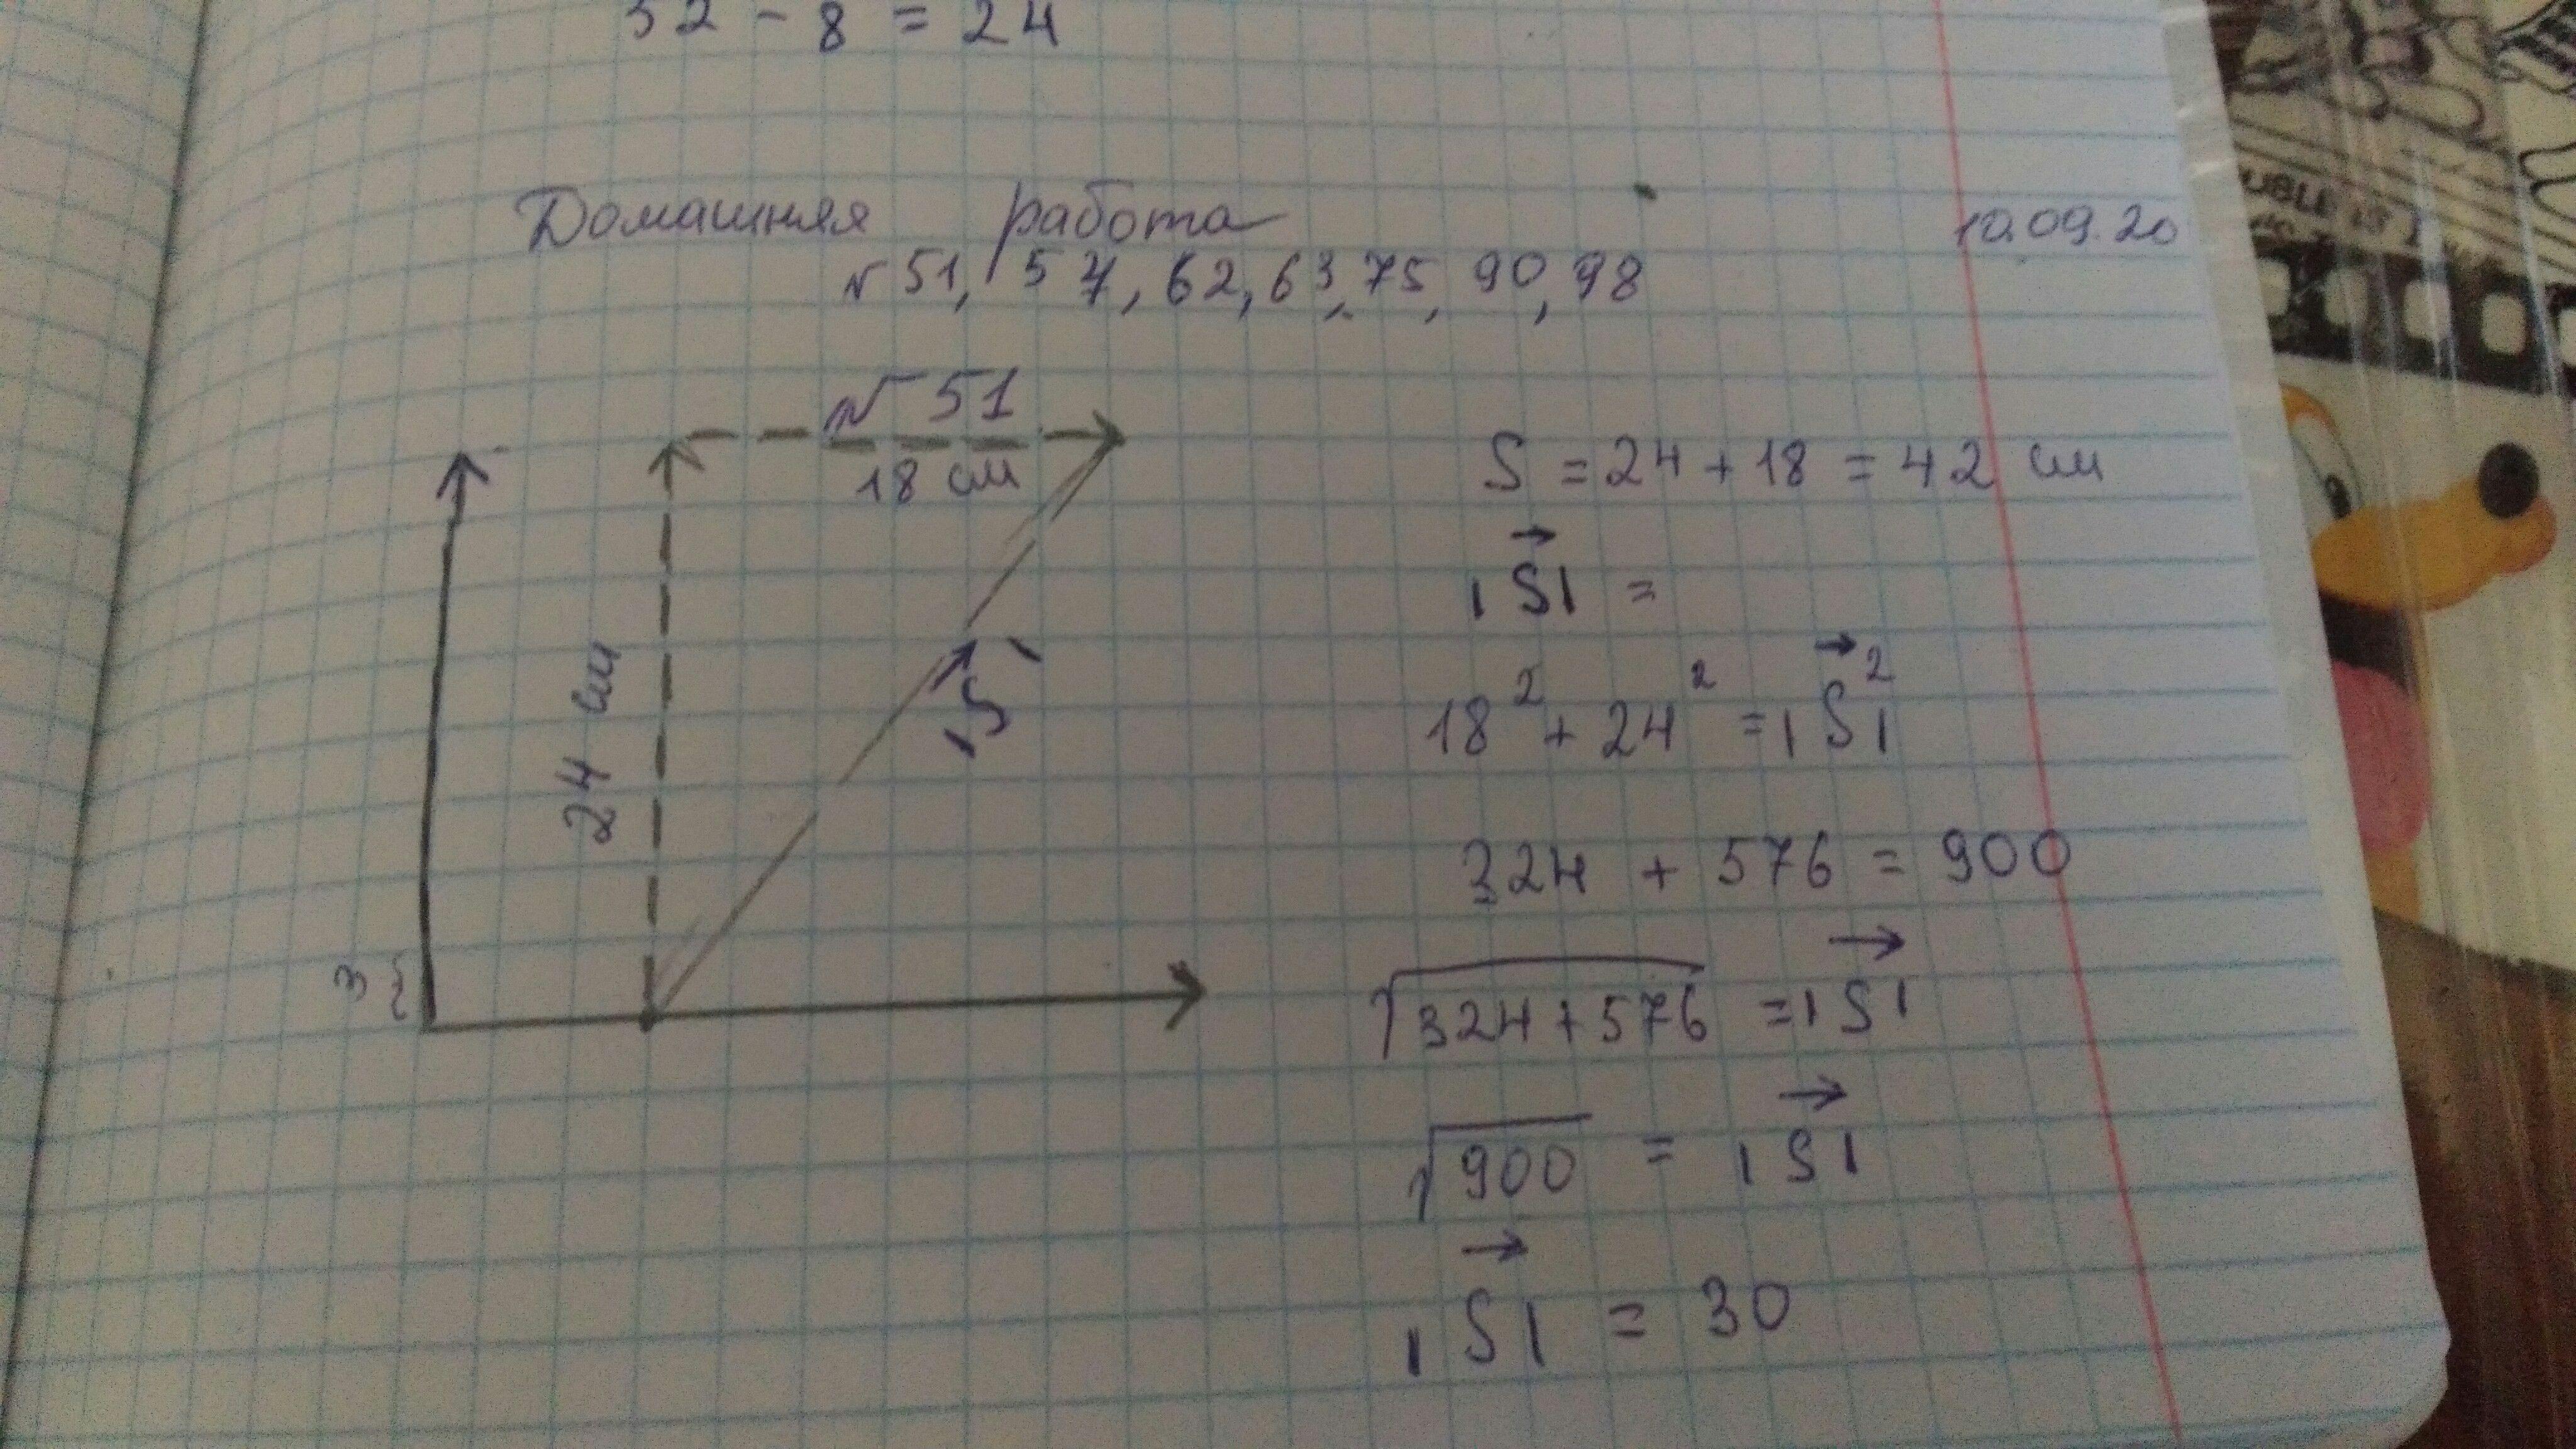 32 - 8 = 24
Домашняя работа
10.09.20
№ 51, 57, 62, 63, 75, 90, 98
№ 51
18 см
24 см
|S|
3 {
S = 24 + 18 = 42 см
|S⃗| =
18² + 24² = |S⃗|²
324 + 576 = 900
√324+576 = |S⃗|
√900 = |S⃗|
|S⃗| = 30